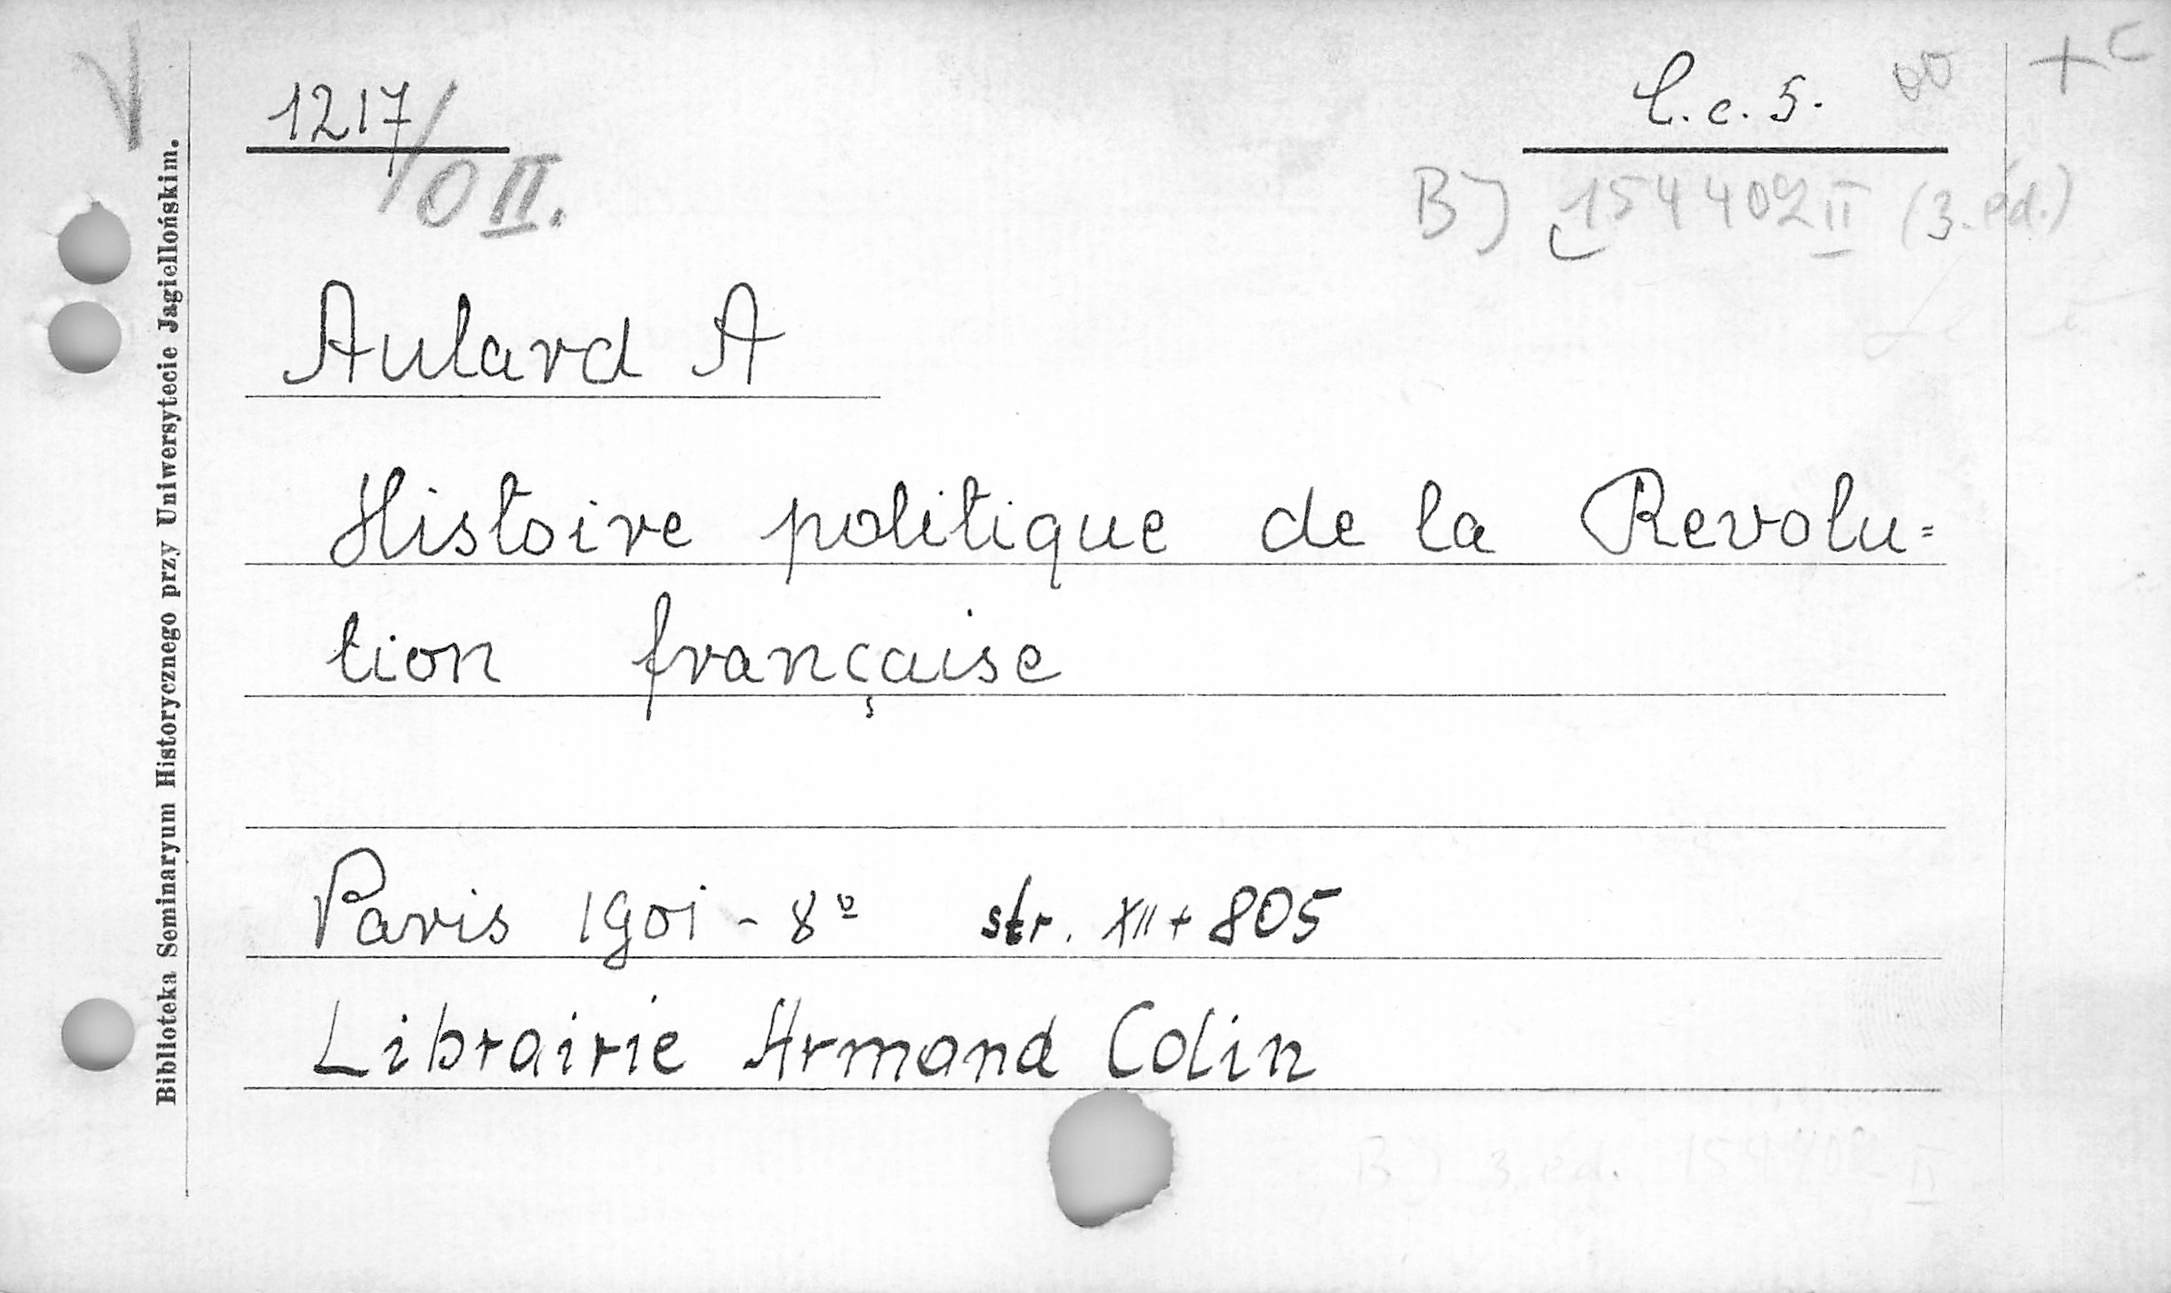 1217/O II.
C.c. 5.
+ c
BJ 154402 II (3. éd.)
Aulard A
Histoire politique de la Revolu=
tion française
Paris 1901 - 8º str. XII + 805
Librairie Armand Colin
BJ 3. éd. 154402 II
Biblioteka Seminaryum Historycznego przy Uniwersytecie Jagiellońskim.